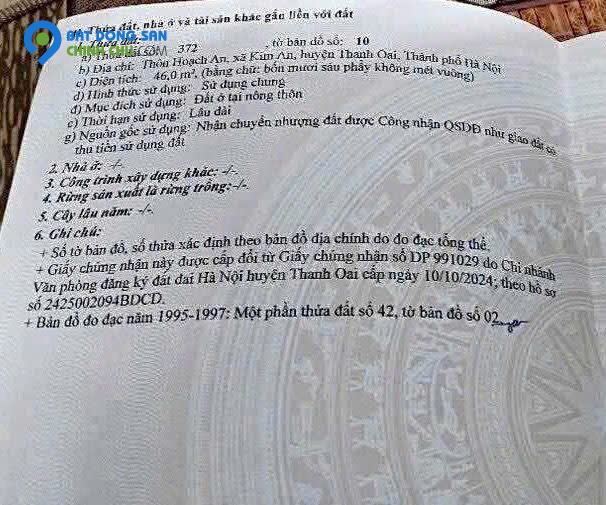 Thửa đất, nhà ở và tài sản khác gắn liền với đất
BAT DONG SAN
CHINH CHU.COM
a) Thửa đất số: 372 , tờ bản đồ số: 10
b) Địa chỉ: Thôn Hoạch An, xã Kim An, huyện Thanh Oai, Thành phố Hà Nội
c) Diện tích: 46,0 m², (bằng chữ: bốn mươi sáu phẩy không mét vuông)
d) Hình thức sử dụng: Sử dụng chung
đ) Mục đích sử dụng: Đất ở tại nông thôn
e) Thời hạn sử dụng: Lâu dài
g) Nguồn gốc sử dụng: Nhận chuyển nhượng đất được Công nhận QSDĐ như giao đất có
thu tiền sử dụng đất
2. Nhà ở: -/-.
3. Công trình xây dựng khác: -/-.
4. Rừng sản xuất là rừng trồng:-/-.
5. Cây lâu năm: -/-.
6. Ghi chú:
+ Số tờ bản đồ, số thửa xác định theo bản đồ địa chính do đo đạc tổng thể.
+ Giấy chứng nhận này được cấp đổi từ Giấy chứng nhận số DP 991029 do Chi nhánh
Văn phòng đăng ký đất đai Hà Nội huyện Thanh Oai cấp ngày 10/10/2024; theo hồ sơ
số 2425002094BDCD.
+ Bản đồ đo đạc năm 1995-1997: Một phần thửa đất số 42, tờ bản đồ số 02